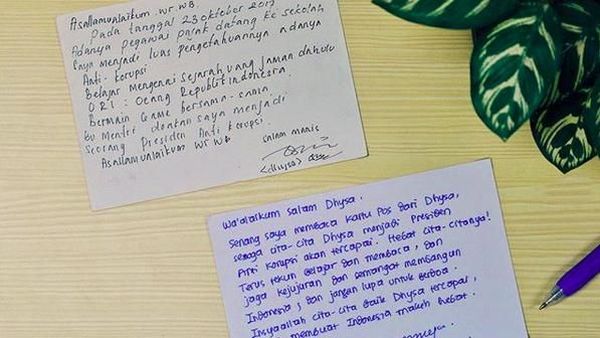 Asallamualaikum. Wr. WB.
Pada tanggal 23 Oktober 2017
Adanya pegawai pajak datang ke sekolah
Saya menjadi luas pengetahuannya adanya
Anti-korupsi
Belajar Mengenai sejarah uang jaman dahulu
ORI: Oeang Republik Indonesia.
Bermain Game bersama-sama.
Bu Mentri doakan saya menjadi
Seorang Presiden Anti Korupsi.
Asallamualaikum Wr WB
Salam manis
(dhysa)
Wa'alaikum Salam Dhysa.
Senang saya membaca kartu pos dari Dhysa,
semoga cita-cita Dhysa menjadi Presiden
Anti Korupsi akan tercapai. Hebat cita-citanya!
Terus tekun belajar dan membaca, dan
jaga kejujuran dan semangat membangun
Indonesia, dan jangan lupa untuk berdoa.
Insyaallah cita-cita baik Dhysa tercapai,
membuat Indonesia makin hebat.